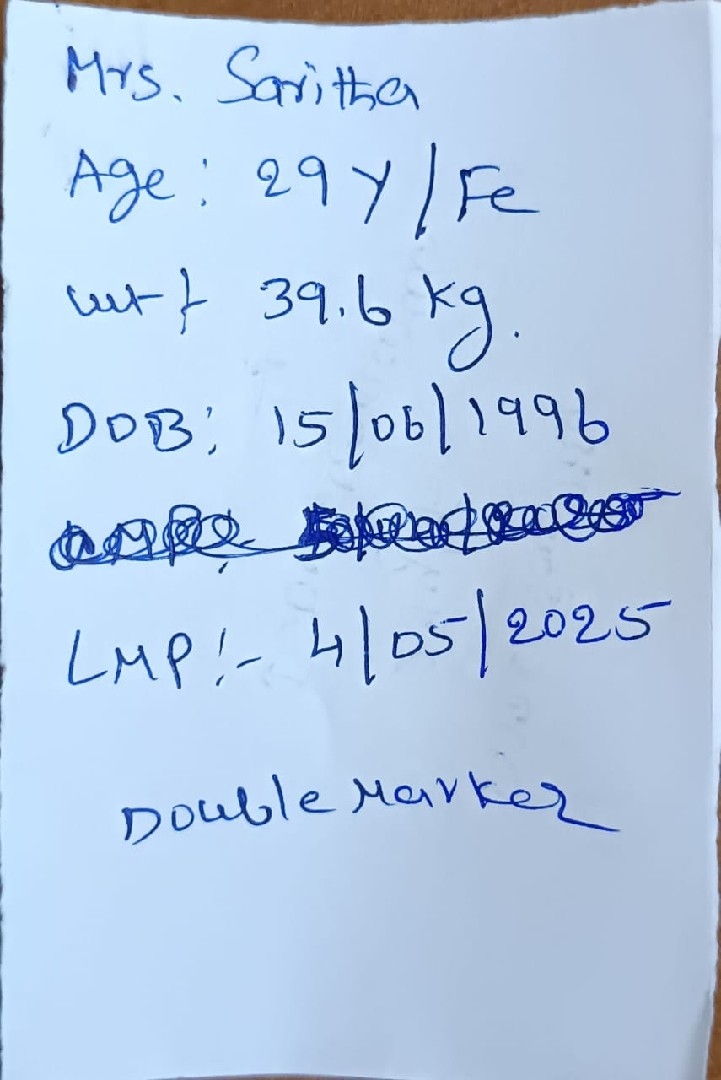 Mrs. Saritha
Age: 29 Y/Fe
wt 39.6 kg.
DOB: 15/06/1996
LMP:- 4/05/2025
Double Marker